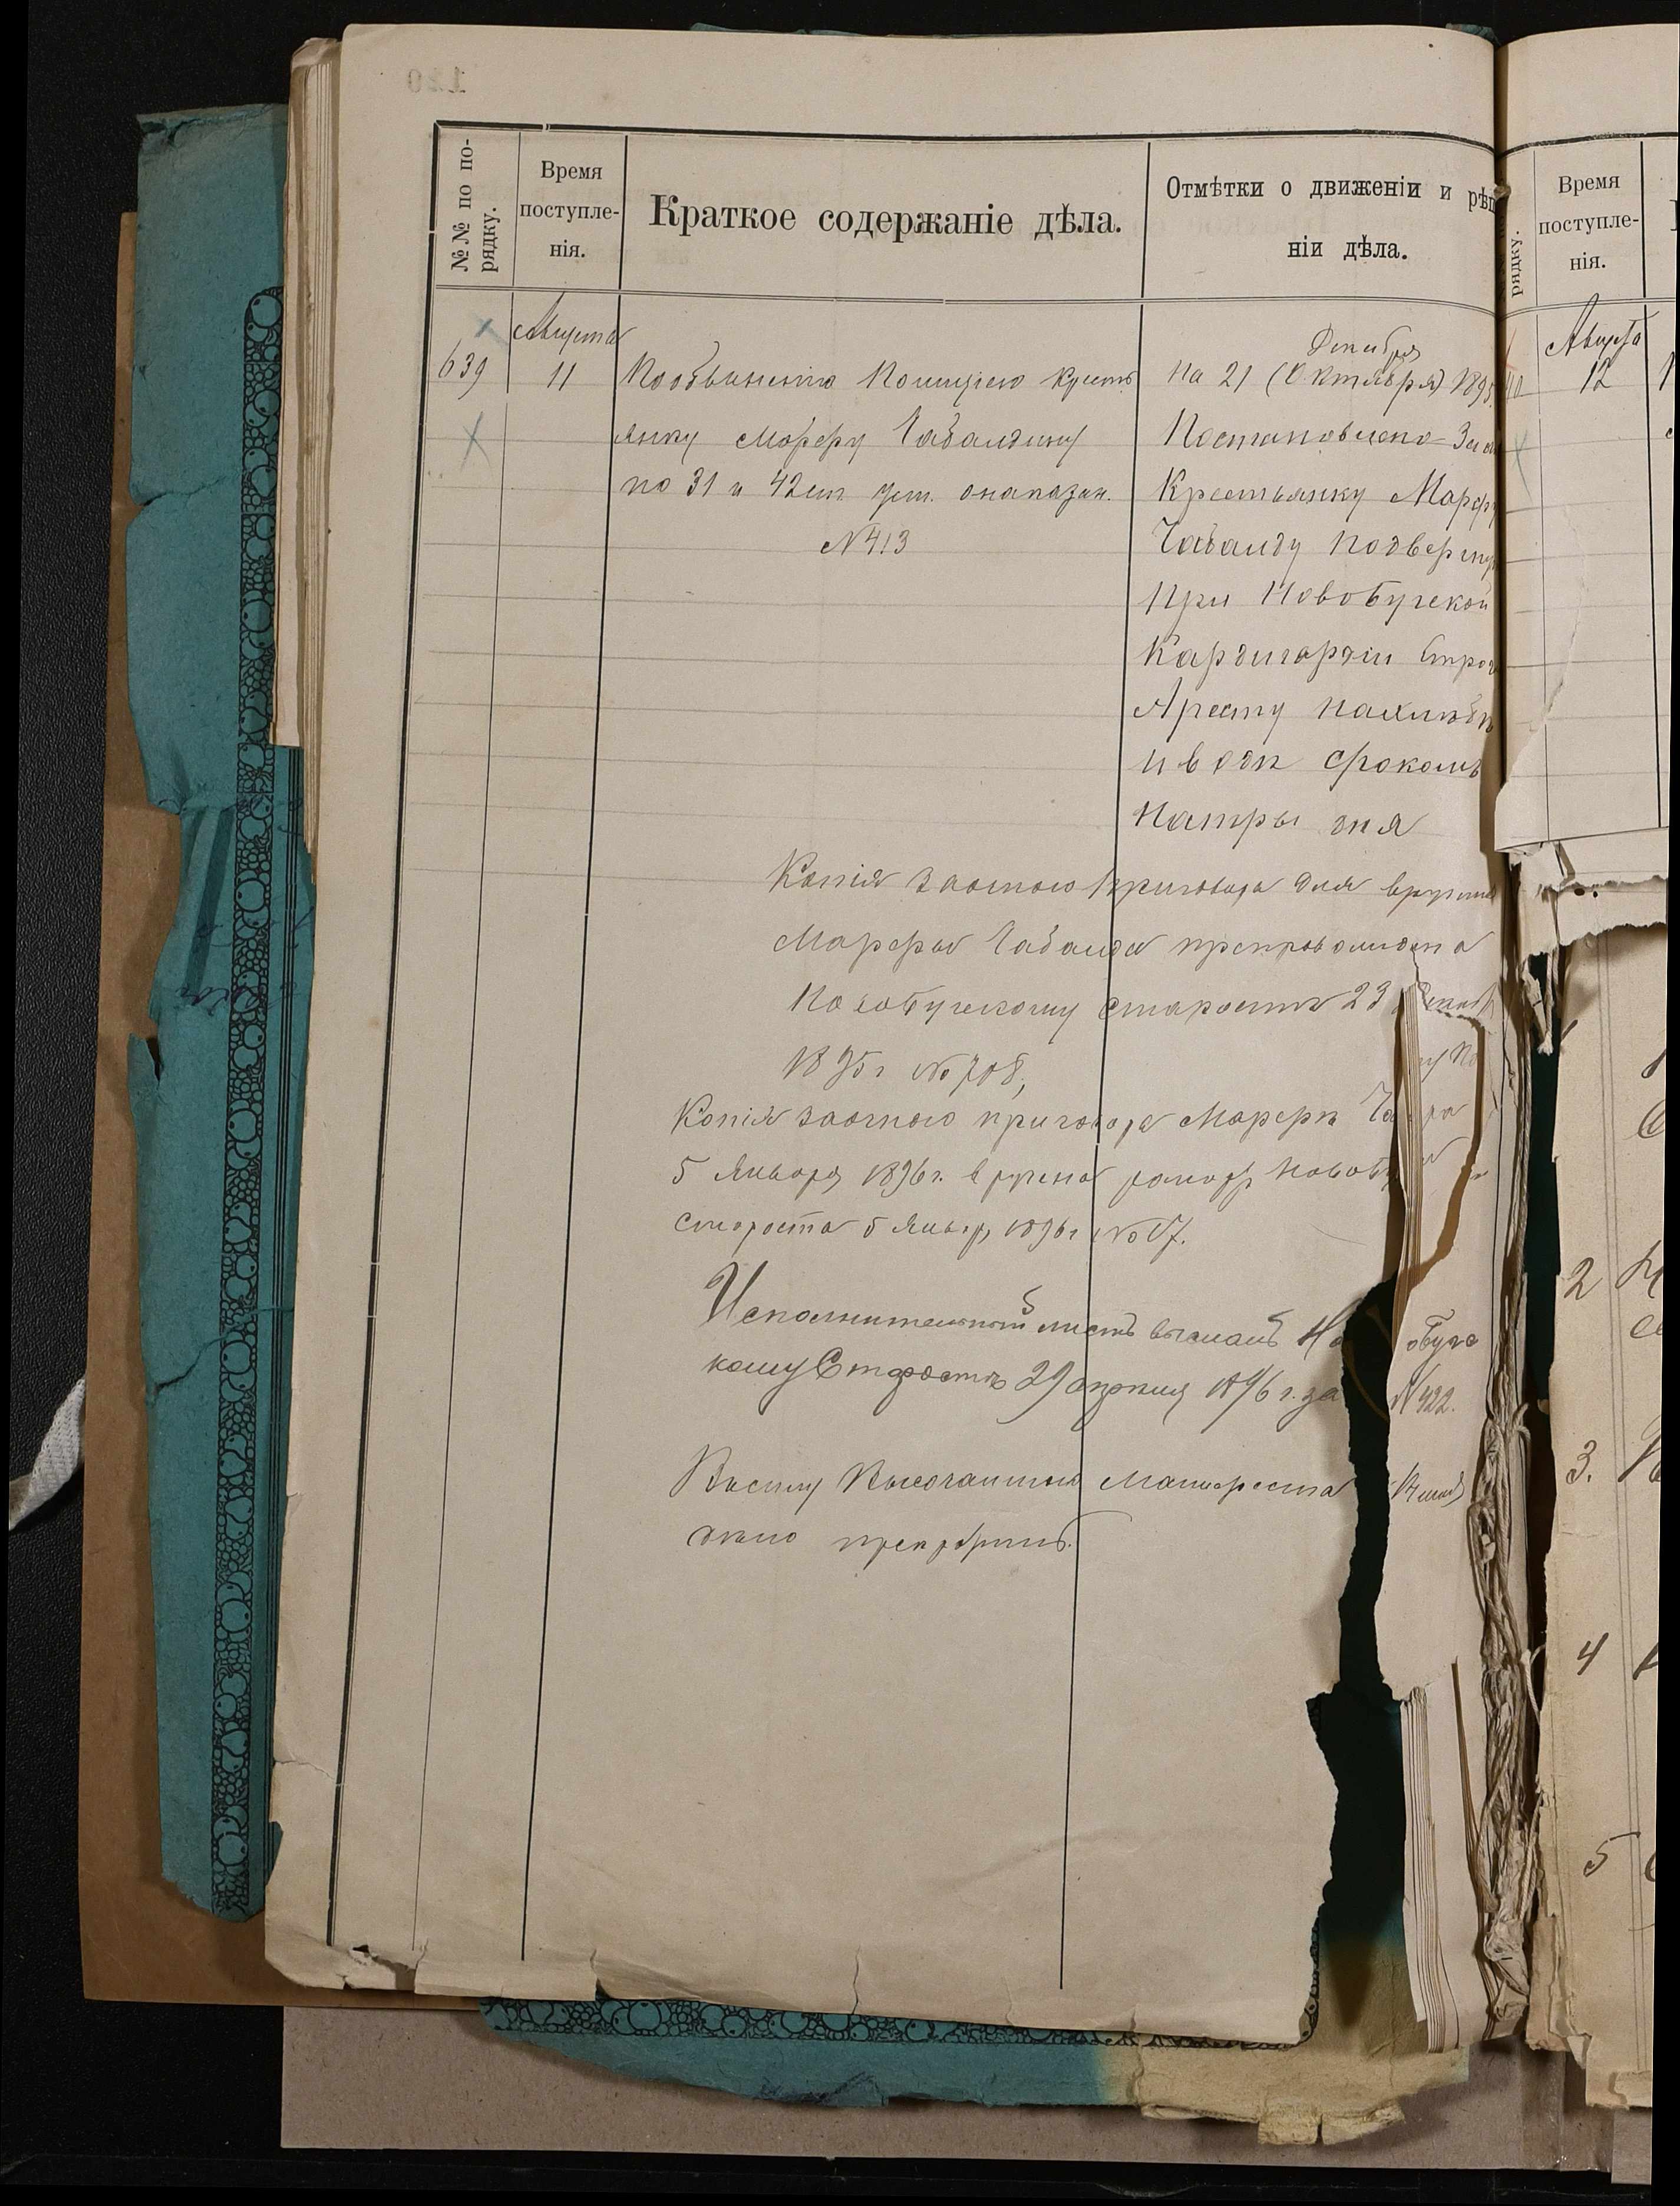 №№ по по-
рядку.
Время
поступле-
нія.
Краткое содержаніе дѣла.
Отмѣтки о движеніи и рѣш
ніи дѣла.
Августа
639
11
По обвиненію Полиціею крестъ
янку Марфу Чабалдину
по 31 и 42 ст. уст. о наказан.
№ 413
Декабря
На 21 (Октября) 189
Постановлено
Крестьянку Марф
Чабалду подвергну
При Новобугской
Кардигардіи строг
Аресту на хлѣбѣ
и водѣ срокомъ
На три дня
Копія заочного приговора для вруч
Марфы Чабалда препровождена
Новобугскому старостѣ 23 Декаб
1895 г № 708,
Копія заочного приговора Марфѣ Ча
5 Января 1896 г. вручена Новобу
староста 5 Январ 1896 г № 17.
Исполнительный листъ высланъ Но обугс
кому Старостѣ 29 апрѣля 1896 г. за № 422.
Въ силу Высочайшаго Манифеста
дѣло
рядку.
Время
поступле-
нія.
Августа
12
2
3.
4
5